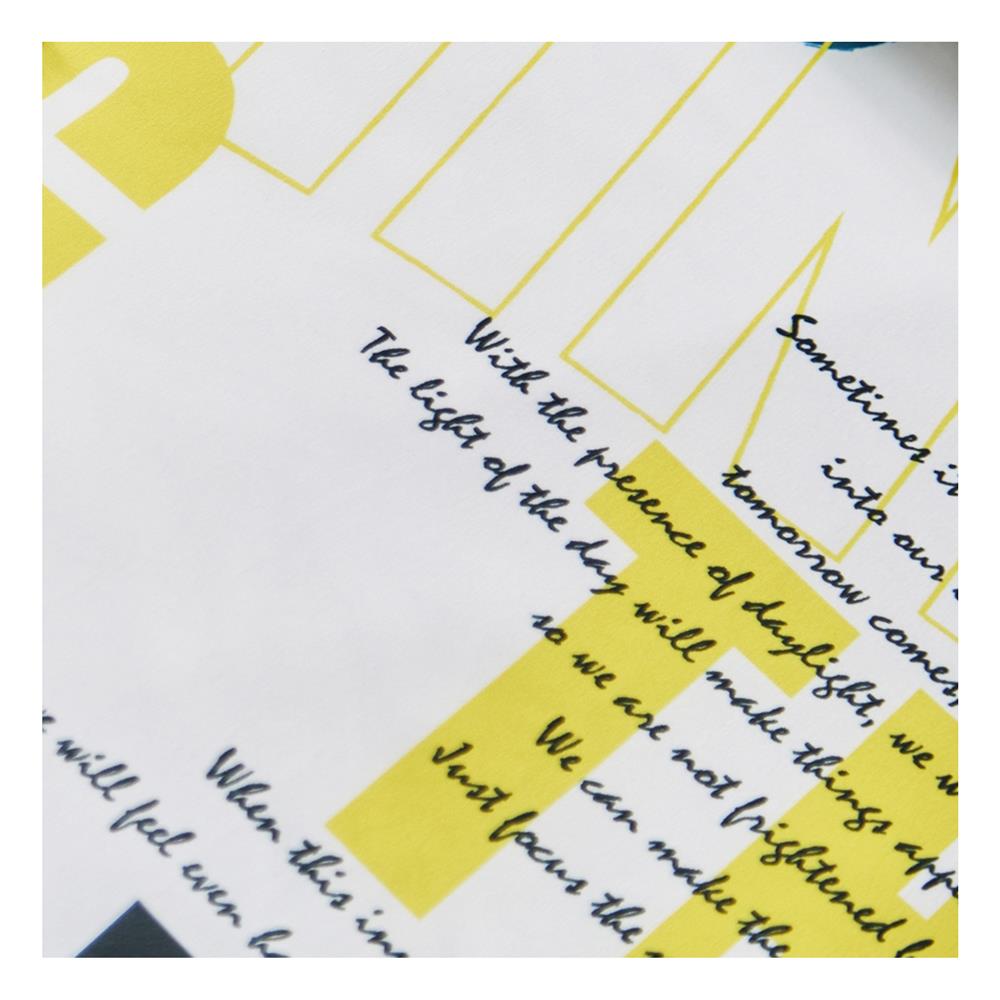 Sometimes
into our
tomorrow comes,
With the presence of daylight, we
The light of the day will make things
so we are not frightened
We can make the
Just focus the
When this
will feel even